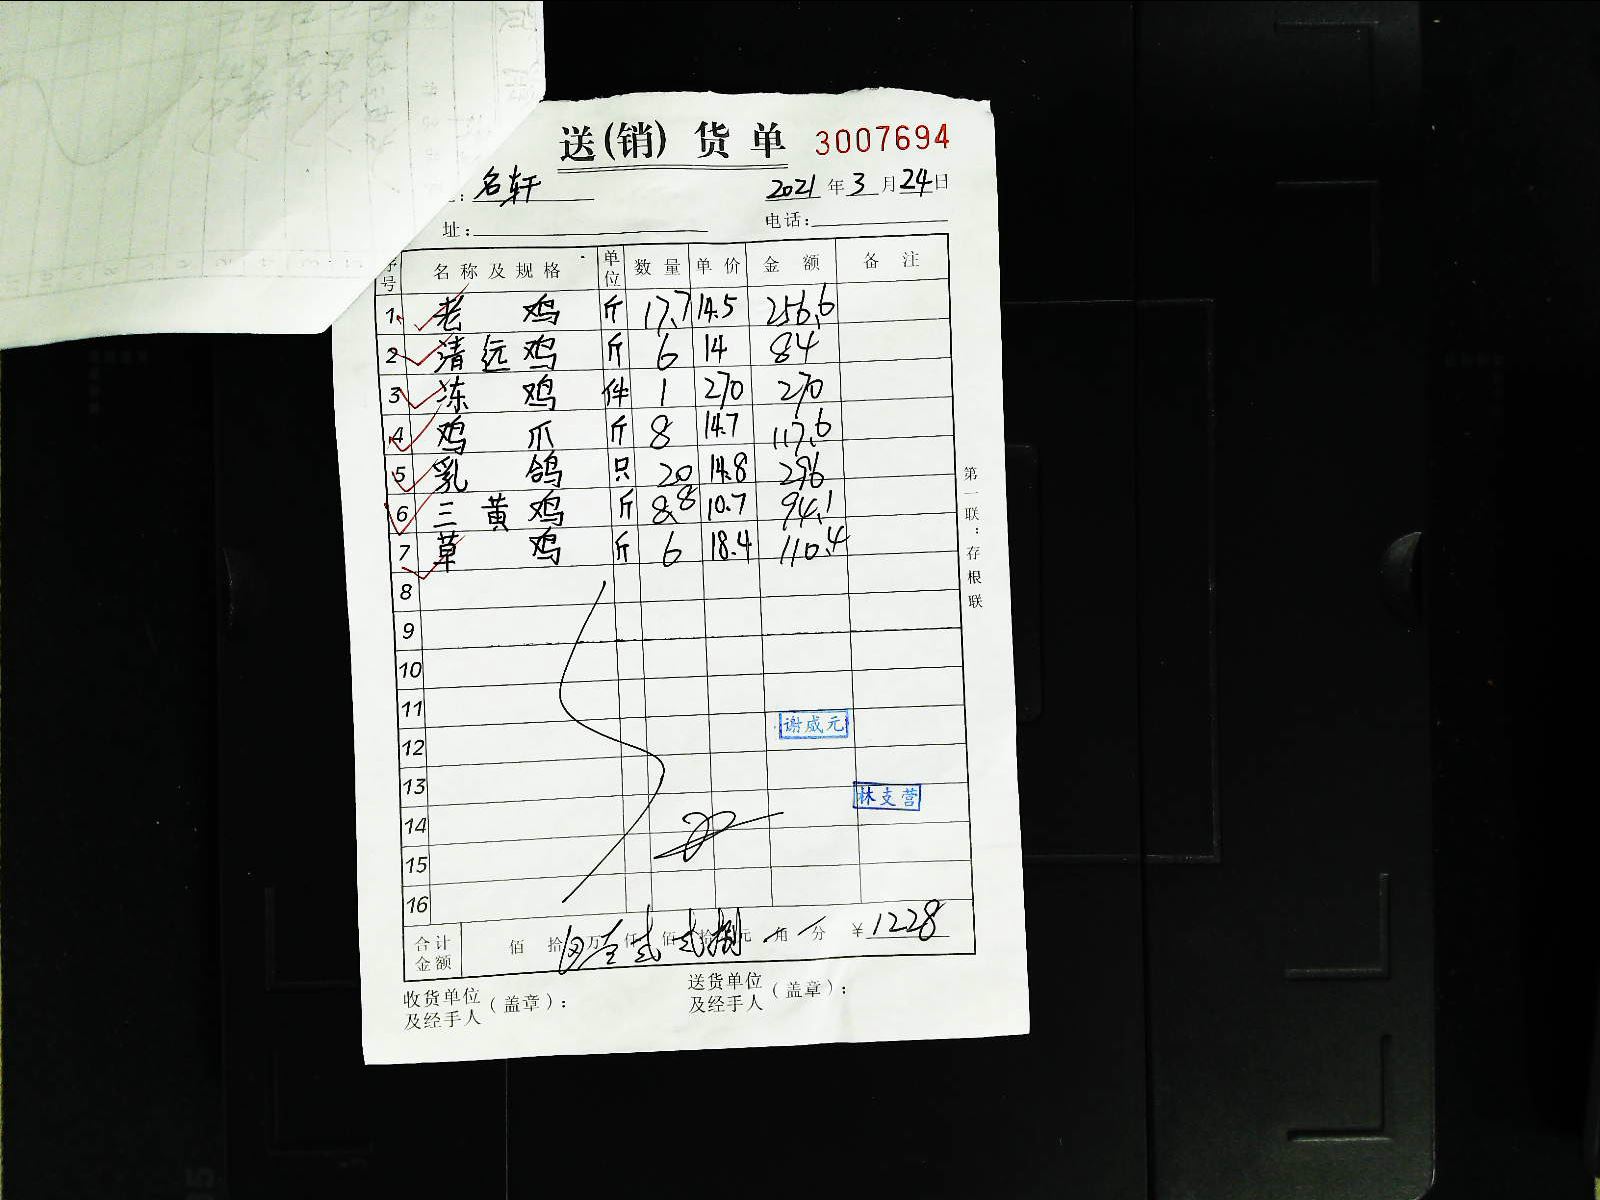 送(销)货单 3007694
：名轩 2021年3月24日
址： 电话：
序号 名称及规格 单位 数量 单价 金额 备注
1 老鸡 斤 17.7 14.5 256.6
2 清远鸡 斤 6 14 84
3 冻鸡 件 1 270 270
4 鸡爪 斤 8 14.7 117.6
5 乳鸽 只 20 14.8 296
6 三黄鸡 斤 8.8 10.7 94.1
7 草鸡 斤 6 18.4 110.4
8
9
10
11
谢威元
12
13
林支营
14
15
16
合计金额 佰拾万仟佰拾元角分 ¥1228
收货单位及经手人（盖章）： 送货单位及经手人（盖章）：
第一联：存根联